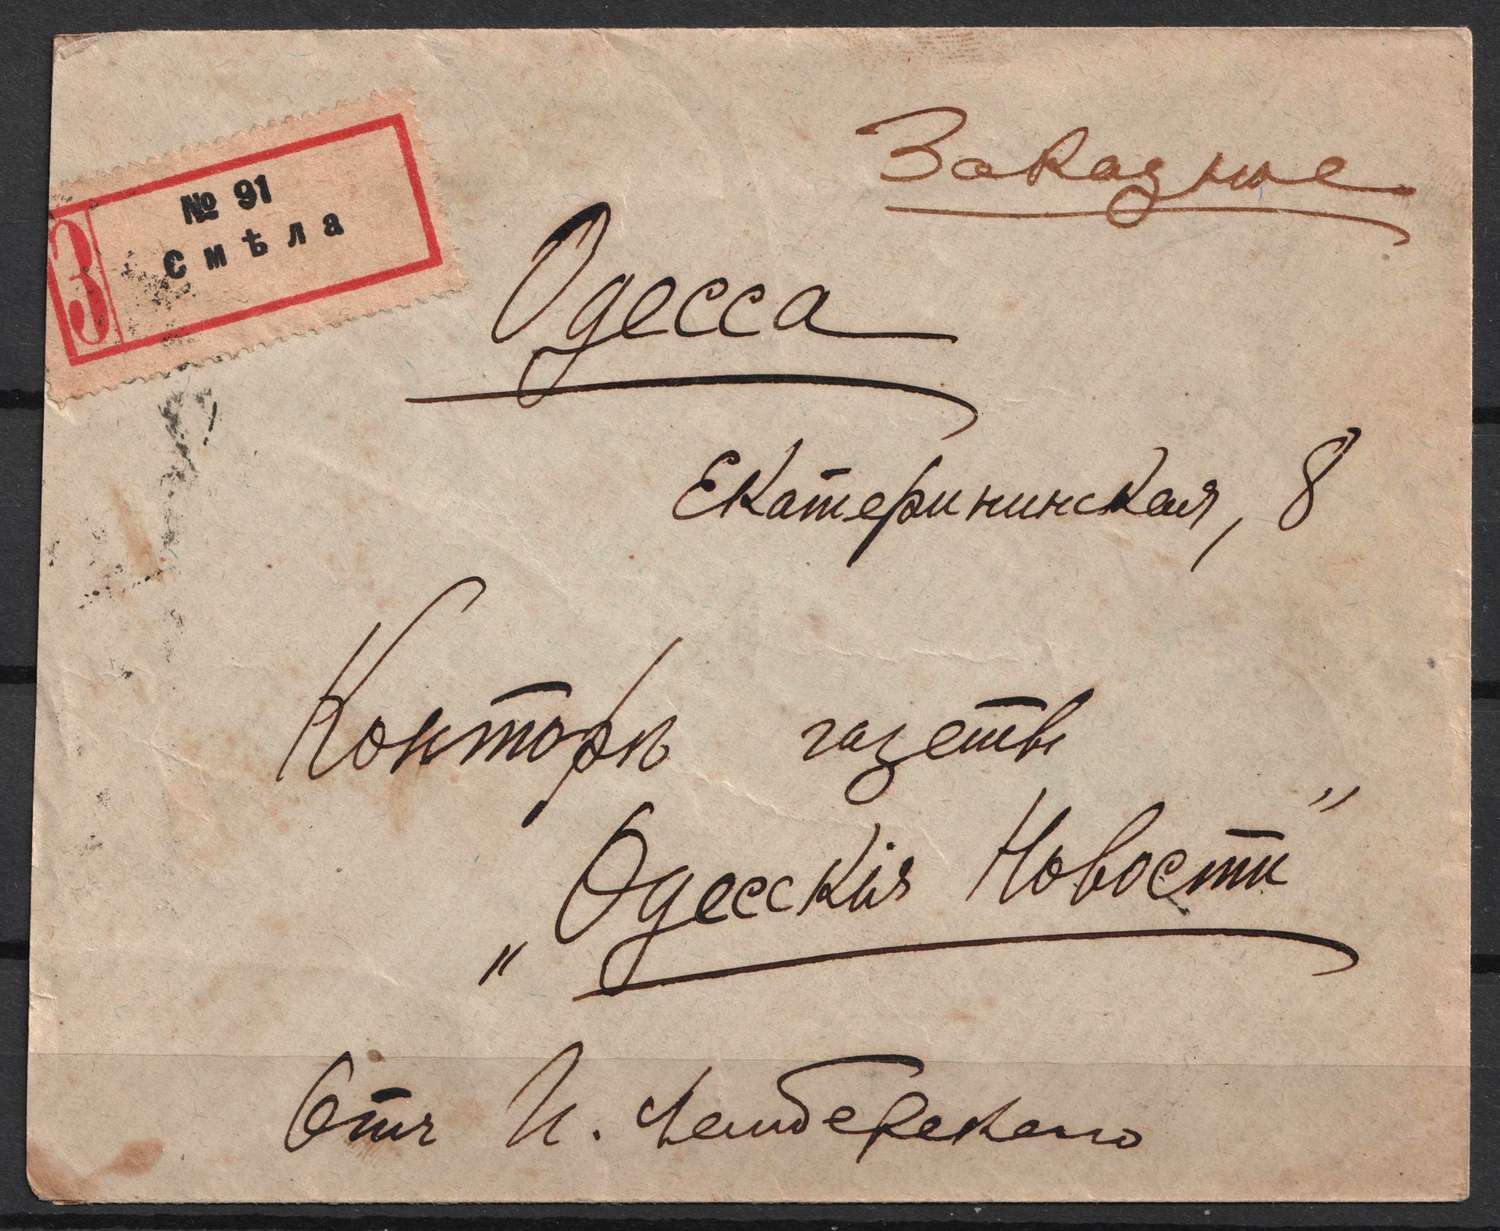 Заказное
З
№ 91
Смѣла
Одесса
Екатерининская, 8
Конторѣ газеты
„Одесскія Новости"
Отъ И.